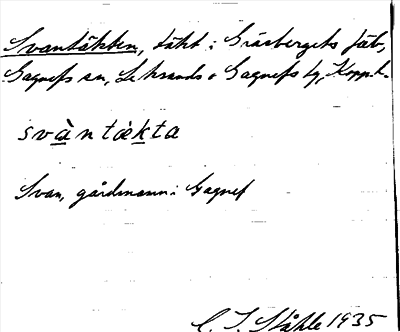 Svantäkten, täkt i Gräsbergets fäb.,
Gagnefs sn, Leksands o Gagnefs tg, Kopp. l.
svàntækta
Svan, gårdsnamn i Gagnef
C. I. Ståhle 1935